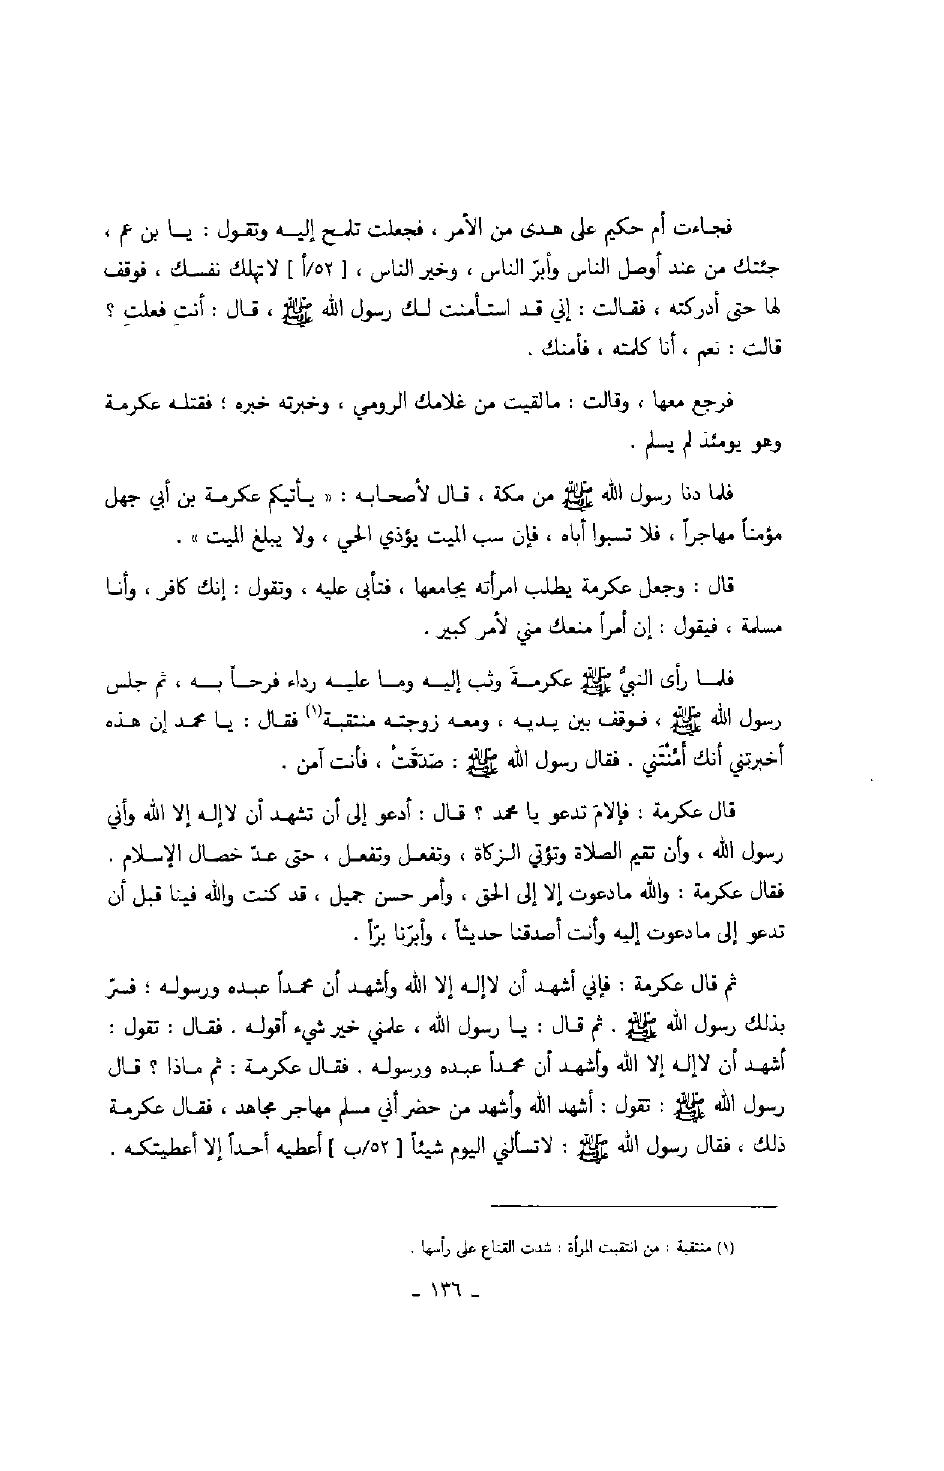 فجاءت أم حكيم على هدى من الأمر ، فجعلت تلمح إليه وتقول : يا بن عم ،
جئتك من عند أوصل الناس وأبرّ الناس ، وخير الناس ، [ ٥٢/أ ] لاتهلك نفسك ، فوقف
لها حتى أدركته ، فقالت : إني قد استأمنت لك رسول الله ﷺ ، قال : أنتِ فعلتِ ؟
قالت : نعم ، أنا كلمته ، فأمنك .
فرجع معها ، وقالت : مالقيت من غلامك الرومي ، وخبرته خبره ؛ فقتله عكرمة
وهو يومئذ لم يسلم .
فلما دنا رسول الله ﷺ من مكة ، قال لأصحابه : « يأتيكم عكرمة بن أبي جهل
مؤمناً مهاجراً ، فلا تسبوا أباه ، فإن سب الميت يؤذي الحي ، ولا يبلغ الميت » .
قال : وجعل عكرمة يطلب امرأته يجامعها ، فتأبى عليه ، وتقول : إنك كافر ، وأنا
مسلمة ، فيقول : إن أمراً منعك مني لأمر كبير .
فلما رأى النبيُّ ﷺ عكرمةَ وثب إليه وما عليه رداء فرحاً به ، ثم جلس
رسول الله ﷺ ، فوقف بين يديه ، ومعه زوجته منتقبة(١) فقال : يا محمد إن هذه
أخبرتني أنك أمَّنْتَني . فقال رسول الله ﷺ : صَدَقَتْ ، فأنت آمن .
قال عكرمة : فإلامَ تدعو يا محمد ؟ قال : أدعو إلى أن تشهد أن لاإله إلا الله وأني
رسول الله ، وأن تقيم الصلاة وتؤتي الزكاة ، وتفعل وتفعل ، حتى عدّ خصال الإسلام .
فقال عكرمة : والله مادعوت إلا إلى الحق ، وأمر حسن جميل ، قد كنت والله فينا قبل أن
تدعو إلى مادعوت إليه وأنت أصدقنا حديثاً ، وأبرّنا برّاً .
ثم قال عكرمة : فإني أشهد أن لاإله إلا الله وأشهد أن محمداً عبده ورسوله ؛ فسرّ
بذلك رسول الله ﷺ . ثم قال : يا رسول الله ، علمني خير شيء أقوله . فقال : تقول :
أشهد أن لاإله إلا الله وأشهد أن محمداً عبده ورسوله . فقال عكرمة : ثم ماذا ؟ قال
رسول الله ﷺ : تقول : أشهد الله وأشهد من حضر أني مسلم مهاجر مجاهد ، فقال عكرمة
ذلك ، فقال رسول الله ﷺ : لاتسألني اليوم شيئاً [ ٥٢/ب ] أعطيه أحداً إلا أعطيتكه .
(١) منتقبة : من انتقبت المرأة : شدت القناع على رأسها .
- ١٣٦ -